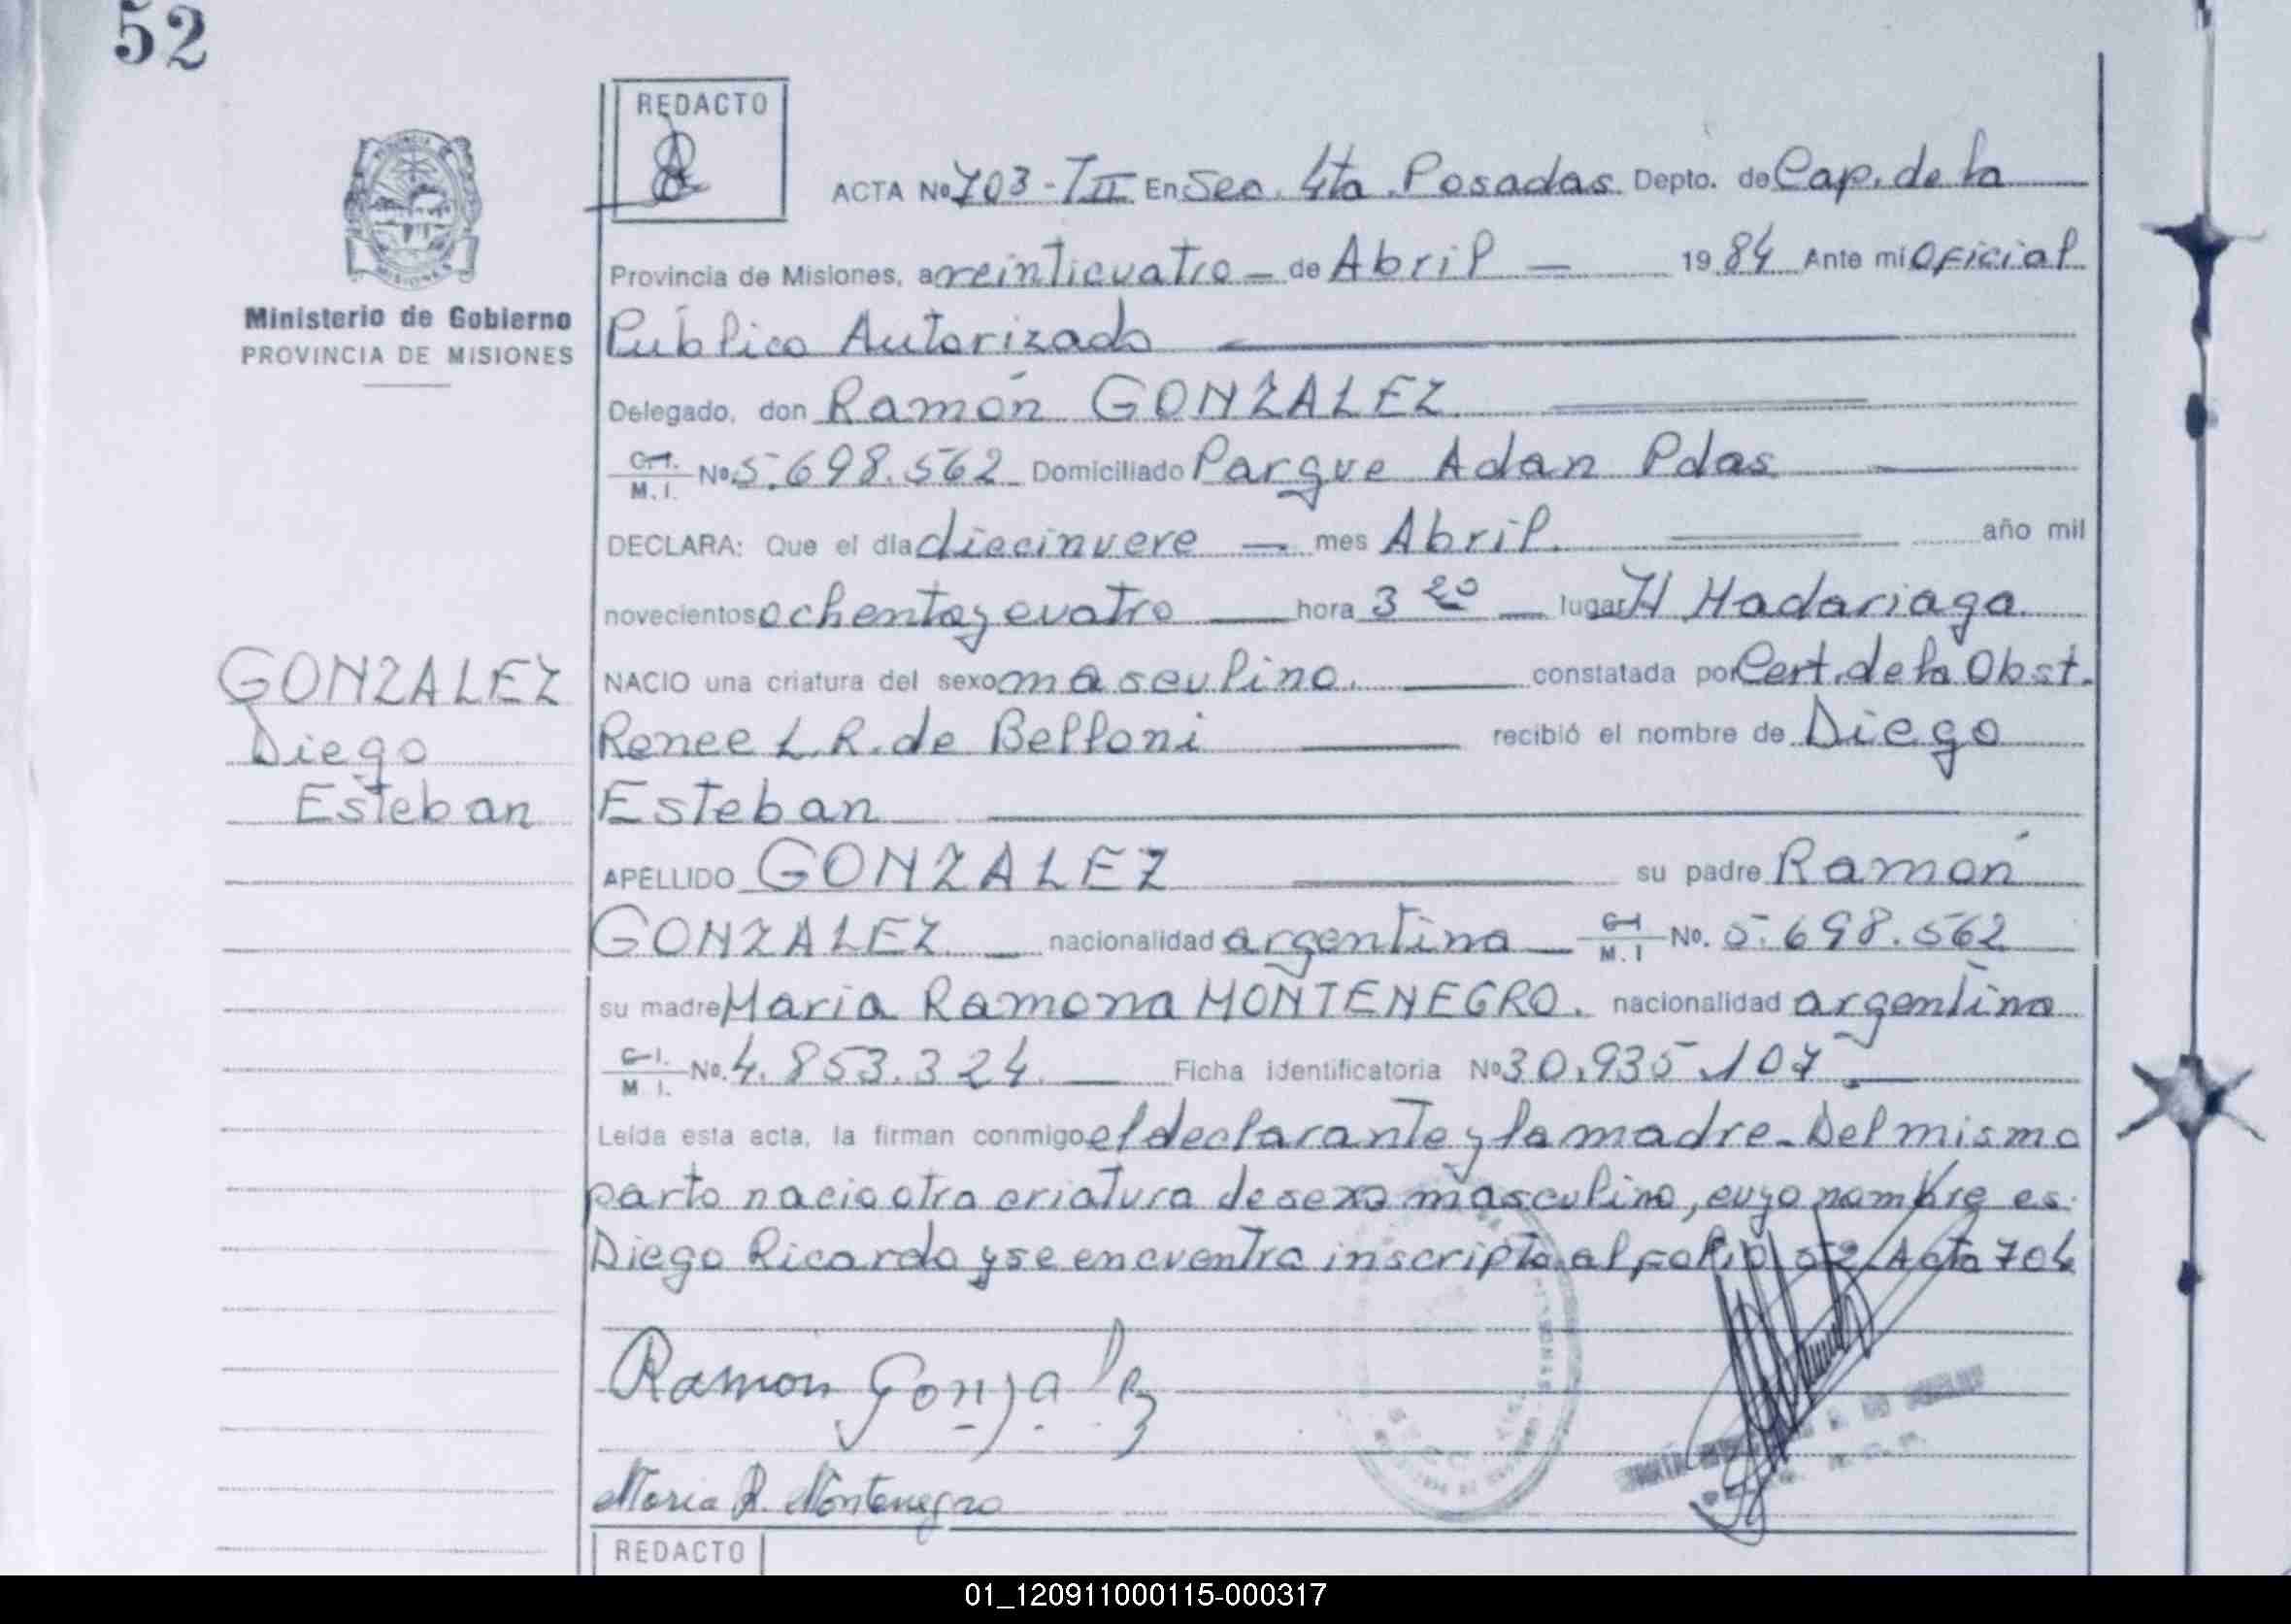 52
REDACTO
ACTA Nº 703-TII En Sec. 4ta. Posadas Depto. de Cap. de la
Provincia de Misiones, a veinticuatro — de Abril — 1984 Ante mi Oficial
Público Autorizado
Ministerio de Gobierno
PROVINCIA DE MISIONES
Delegado, don Ramón GONZALEZ
C.I. M.I. Nº 5.698.562 Domiciliado Parque Adan Pdas
DECLARA: Que el día diecinueve — mes Abril. año mil
novecientos ochenta y cuatro hora 3 20 — lugar H Madariaga
GONZALEZ
Diego
Esteban
NACIO una criatura del sexo masculino. constatada por Cert. de la Obst.
Renee L.R. de Belloni recibió el nombre de Diego
Esteban
APELLIDO GONZALEZ su padre Ramón
GONZALEZ nacionalidad argentina — C.I. M.I Nº. 5.698.562
su madre Maria Ramona MONTENEGRO. nacionalidad argentina
C.I. M.I. Nº. 4.853.324 Ficha identificatoria Nº 30.935.107
Leída esta acta, la firman conmigo el declarante y la madre - Del mismo
parto nacio otra criatura de sexo masculino, cuyo nombre es
Diego Ricardo y se encuentra inscripto al folio 52 Acta 704
Ramon Gonzalez
Maria R. Montenegro
REDACTO
01_120911000115-000317